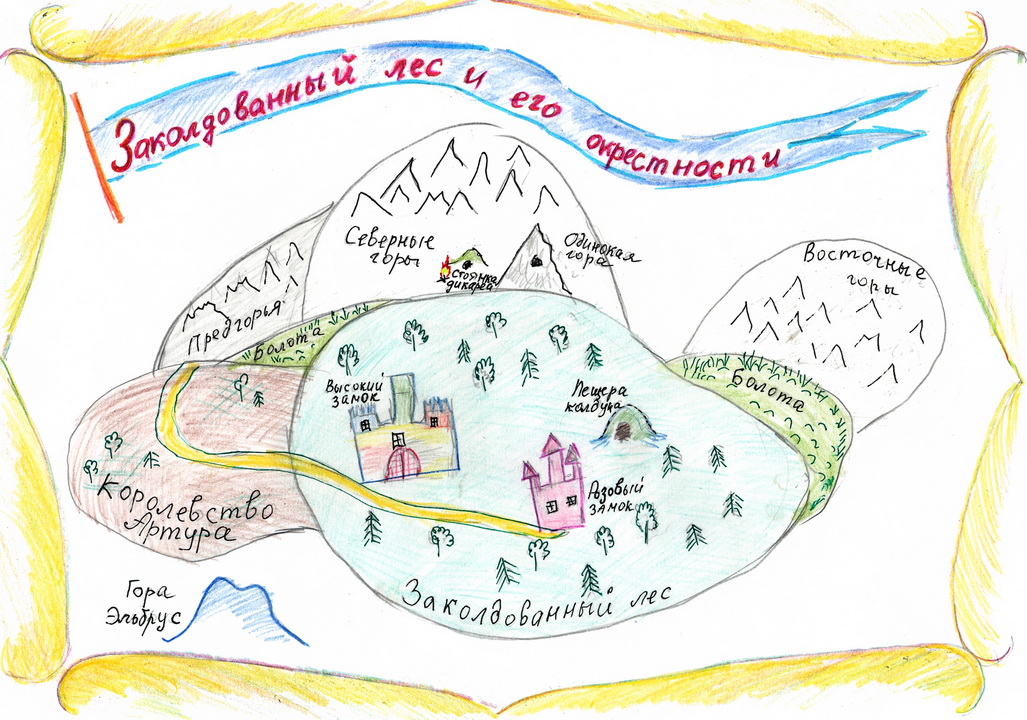 Заколдованный лес и его окрестности
Северные
горы
Одинокая
гора
Стоянка
дикаря
Восточные
горы
Предгорья
Болота
Высокий
замок
Пещера
колдуна
Болота
Королевство
Артура
Розовый
замок
Гора
Эльбрус
Заколдованный лес